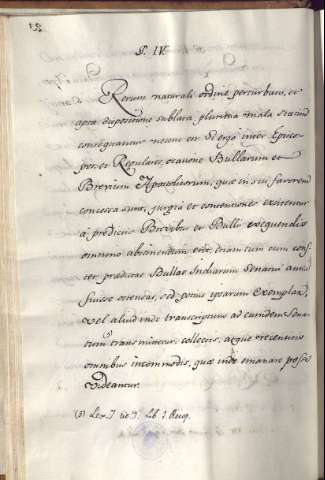 §. IV.
Rerum naturali ordine perturbato, et
apta dispositione sublata, plurima mala
consequantur necesse est. Ideo inter Episco
pos et Regulares, ratione Bullarum et
Brevium Apostolicorum, quæ in sui favorem
concessa sunt, jurgia et contentiones excitentur
à prædictis Brevibus et Bullis exequendis
omnino abstinendum erit, etiam cum cons
tet prædictas Bullas Indiarum Senatui
fuisse ostensas, sed potius ipsarum exemplar,
vel aliud inde transcriptum ad eundem Sena
tum transmittetur: collectis, atque recensitis
omnibus incommodis, quæ inde emanare posse
videantur.
(3) Lex 7 tit. 9. Lib. 1 Recop.